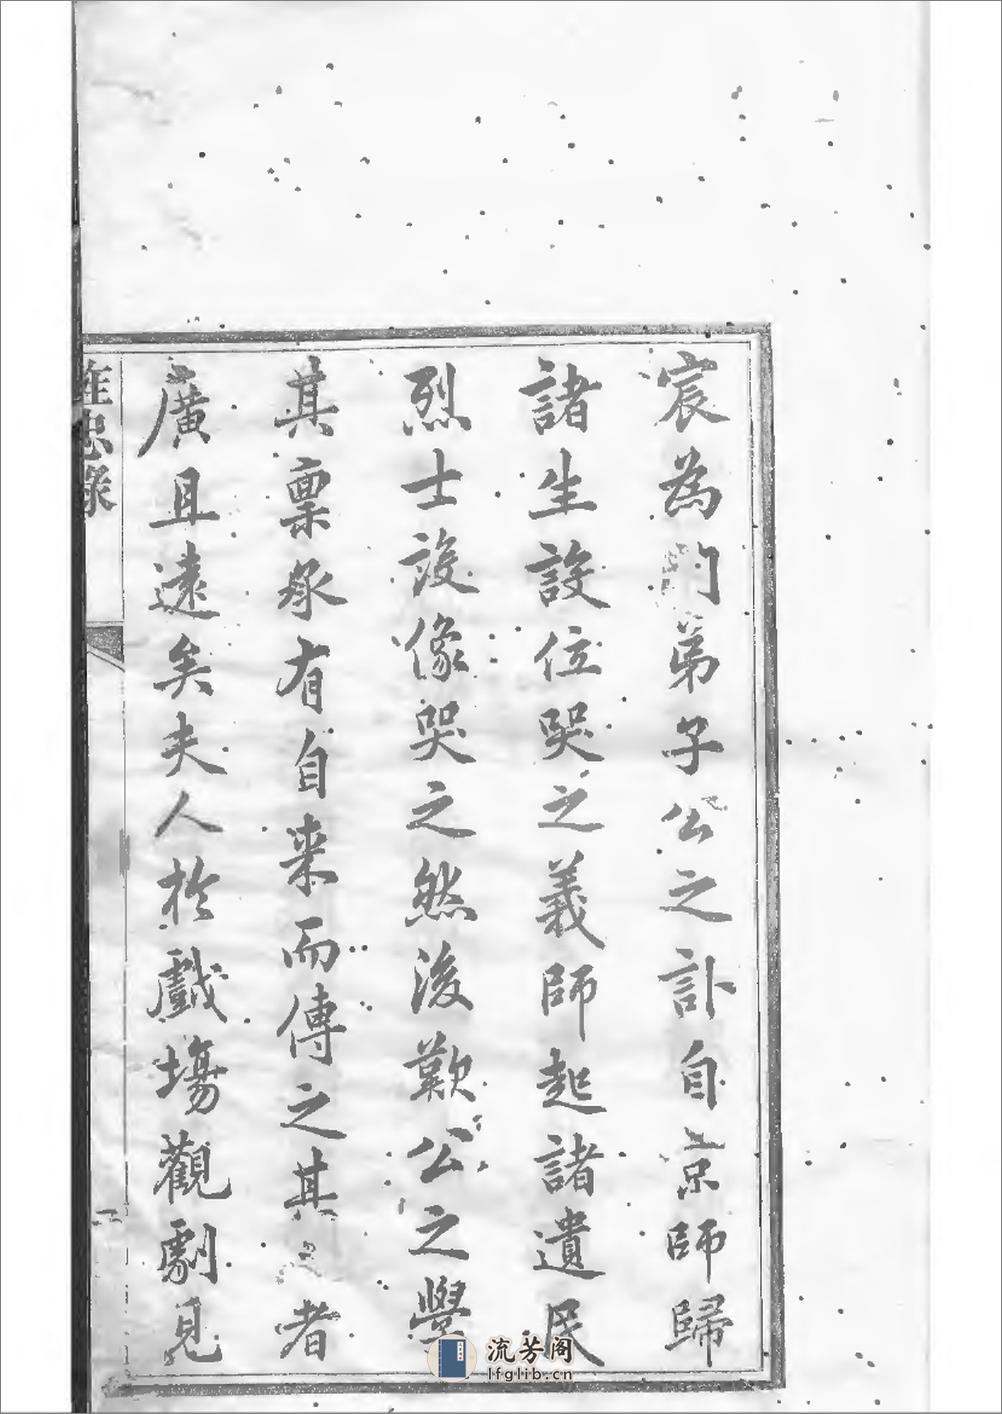 宸為門弟子公之訃自京師歸
諸生設位哭之義師起諸遺民
烈士設像哭之然後歎公之學
其稟承有自来而傳之其者
廣且遠矣夫人於戲塲觀劇見
旌忠錄
二
流芳阁
lfglib.cn